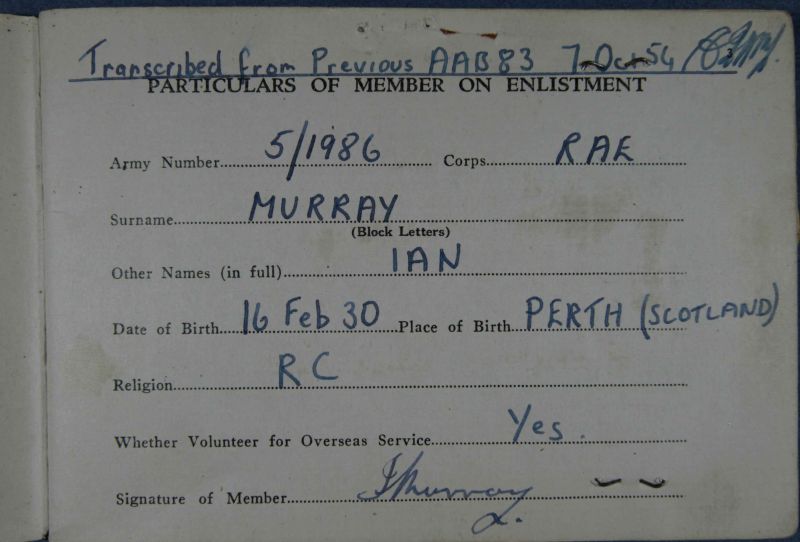 Transcribed from Previous AAB83 7 Oct 54
3
PARTICULARS OF MEMBER ON ENLISTMENT
Army Number 5/1986 Corps RAE
Surname MURRAY
(Block Letters)
Other Names (in full) IAN
Date of Birth 16 Feb 30 Place of Birth PERTH (SCOTLAND)
Religion RC
Whether Volunteer for Overseas Service Yes.
Signature of Member I Murray